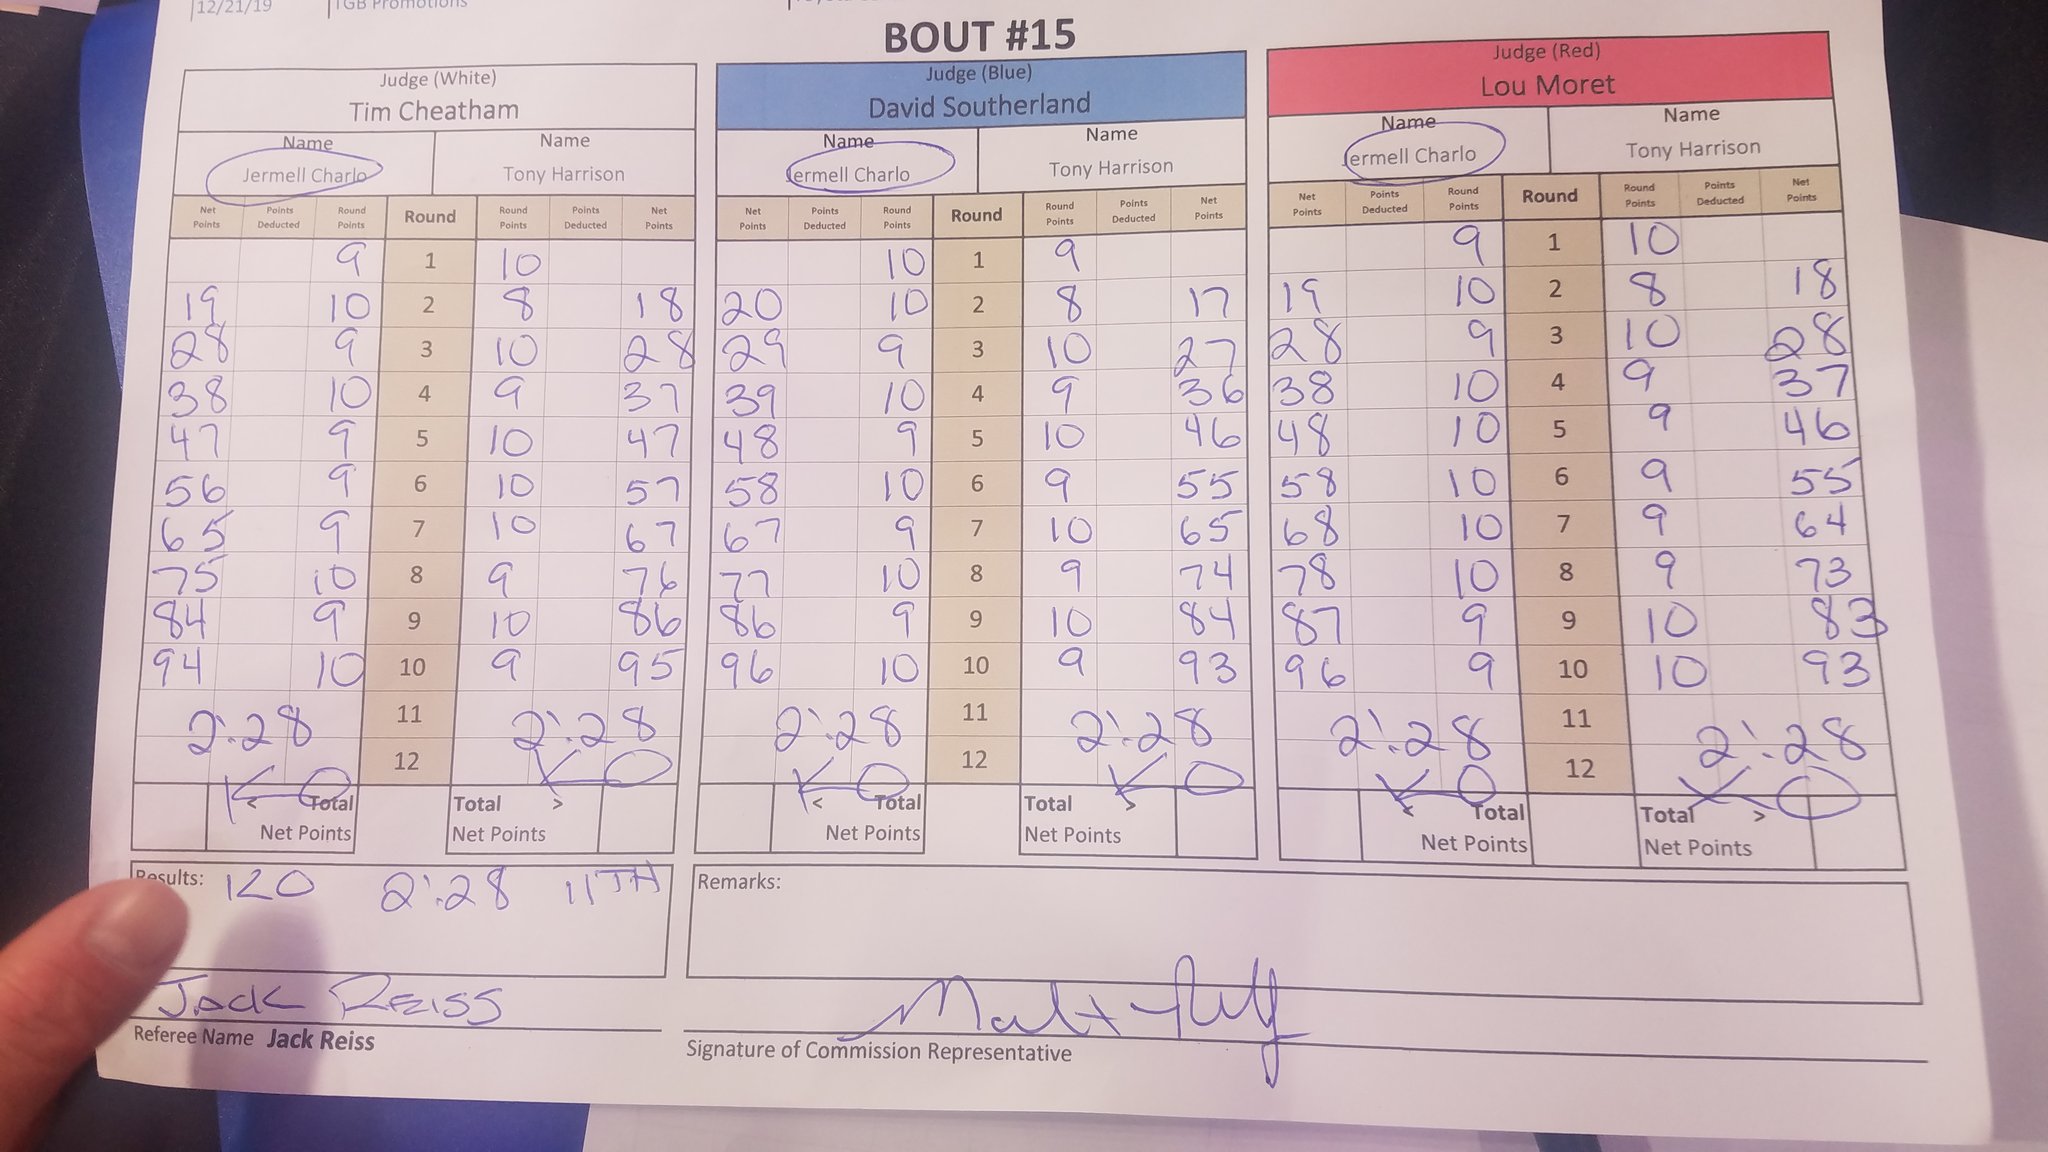 12/21/19 TGB Promotions
BOUT #15
Judge (White) Judge (Blue) Judge (Red)
Tim Cheatham David Southerland Lou Moret
Name Name Name Name Name Name
Jermell Charlo Tony Harrison Jermell Charlo Tony Harrison Jermell Charlo Tony Harrison
Net Points Points Deducted Round Points Round Round Points Points Deducted Net Points Net Points Points Deducted Round Points Round Round Points Points Deducted Net Points Net Points Points Deducted Round Points Round Round Points Points Deducted Net Points
9 1 10 10 1 9 9 1 10
19 10 2 8 18 20 10 2 8 17 19 10 2 8 18
28 9 3 10 28 29 9 3 10 27 28 9 3 10 28
38 10 4 9 37 39 10 4 9 36 38 10 4 9 37
47 9 5 10 47 48 9 5 10 46 48 10 5 9 46
56 9 6 10 57 58 10 6 9 55 58 10 6 9 55
65 9 7 10 67 67 9 7 10 65 68 10 7 9 64
75 10 8 9 76 77 10 8 9 74 78 10 8 9 73
84 9 9 10 86 86 9 9 10 84 87 9 9 10 83
94 10 10 9 95 96 10 10 9 93 96 9 10 10 93
2:28 11 2:28 2:28 11 2:28 2:28 11 2:28
KO 12 KO KO 12 KO KO 12 KO
< Total Total > < Total Total > < Total Total >
Net Points Net Points Net Points Net Points Net Points Net Points
Results: KO 2:28 11TH Remarks:
Jack Reiss
Referee Name Jack Reiss Signature of Commission Representative